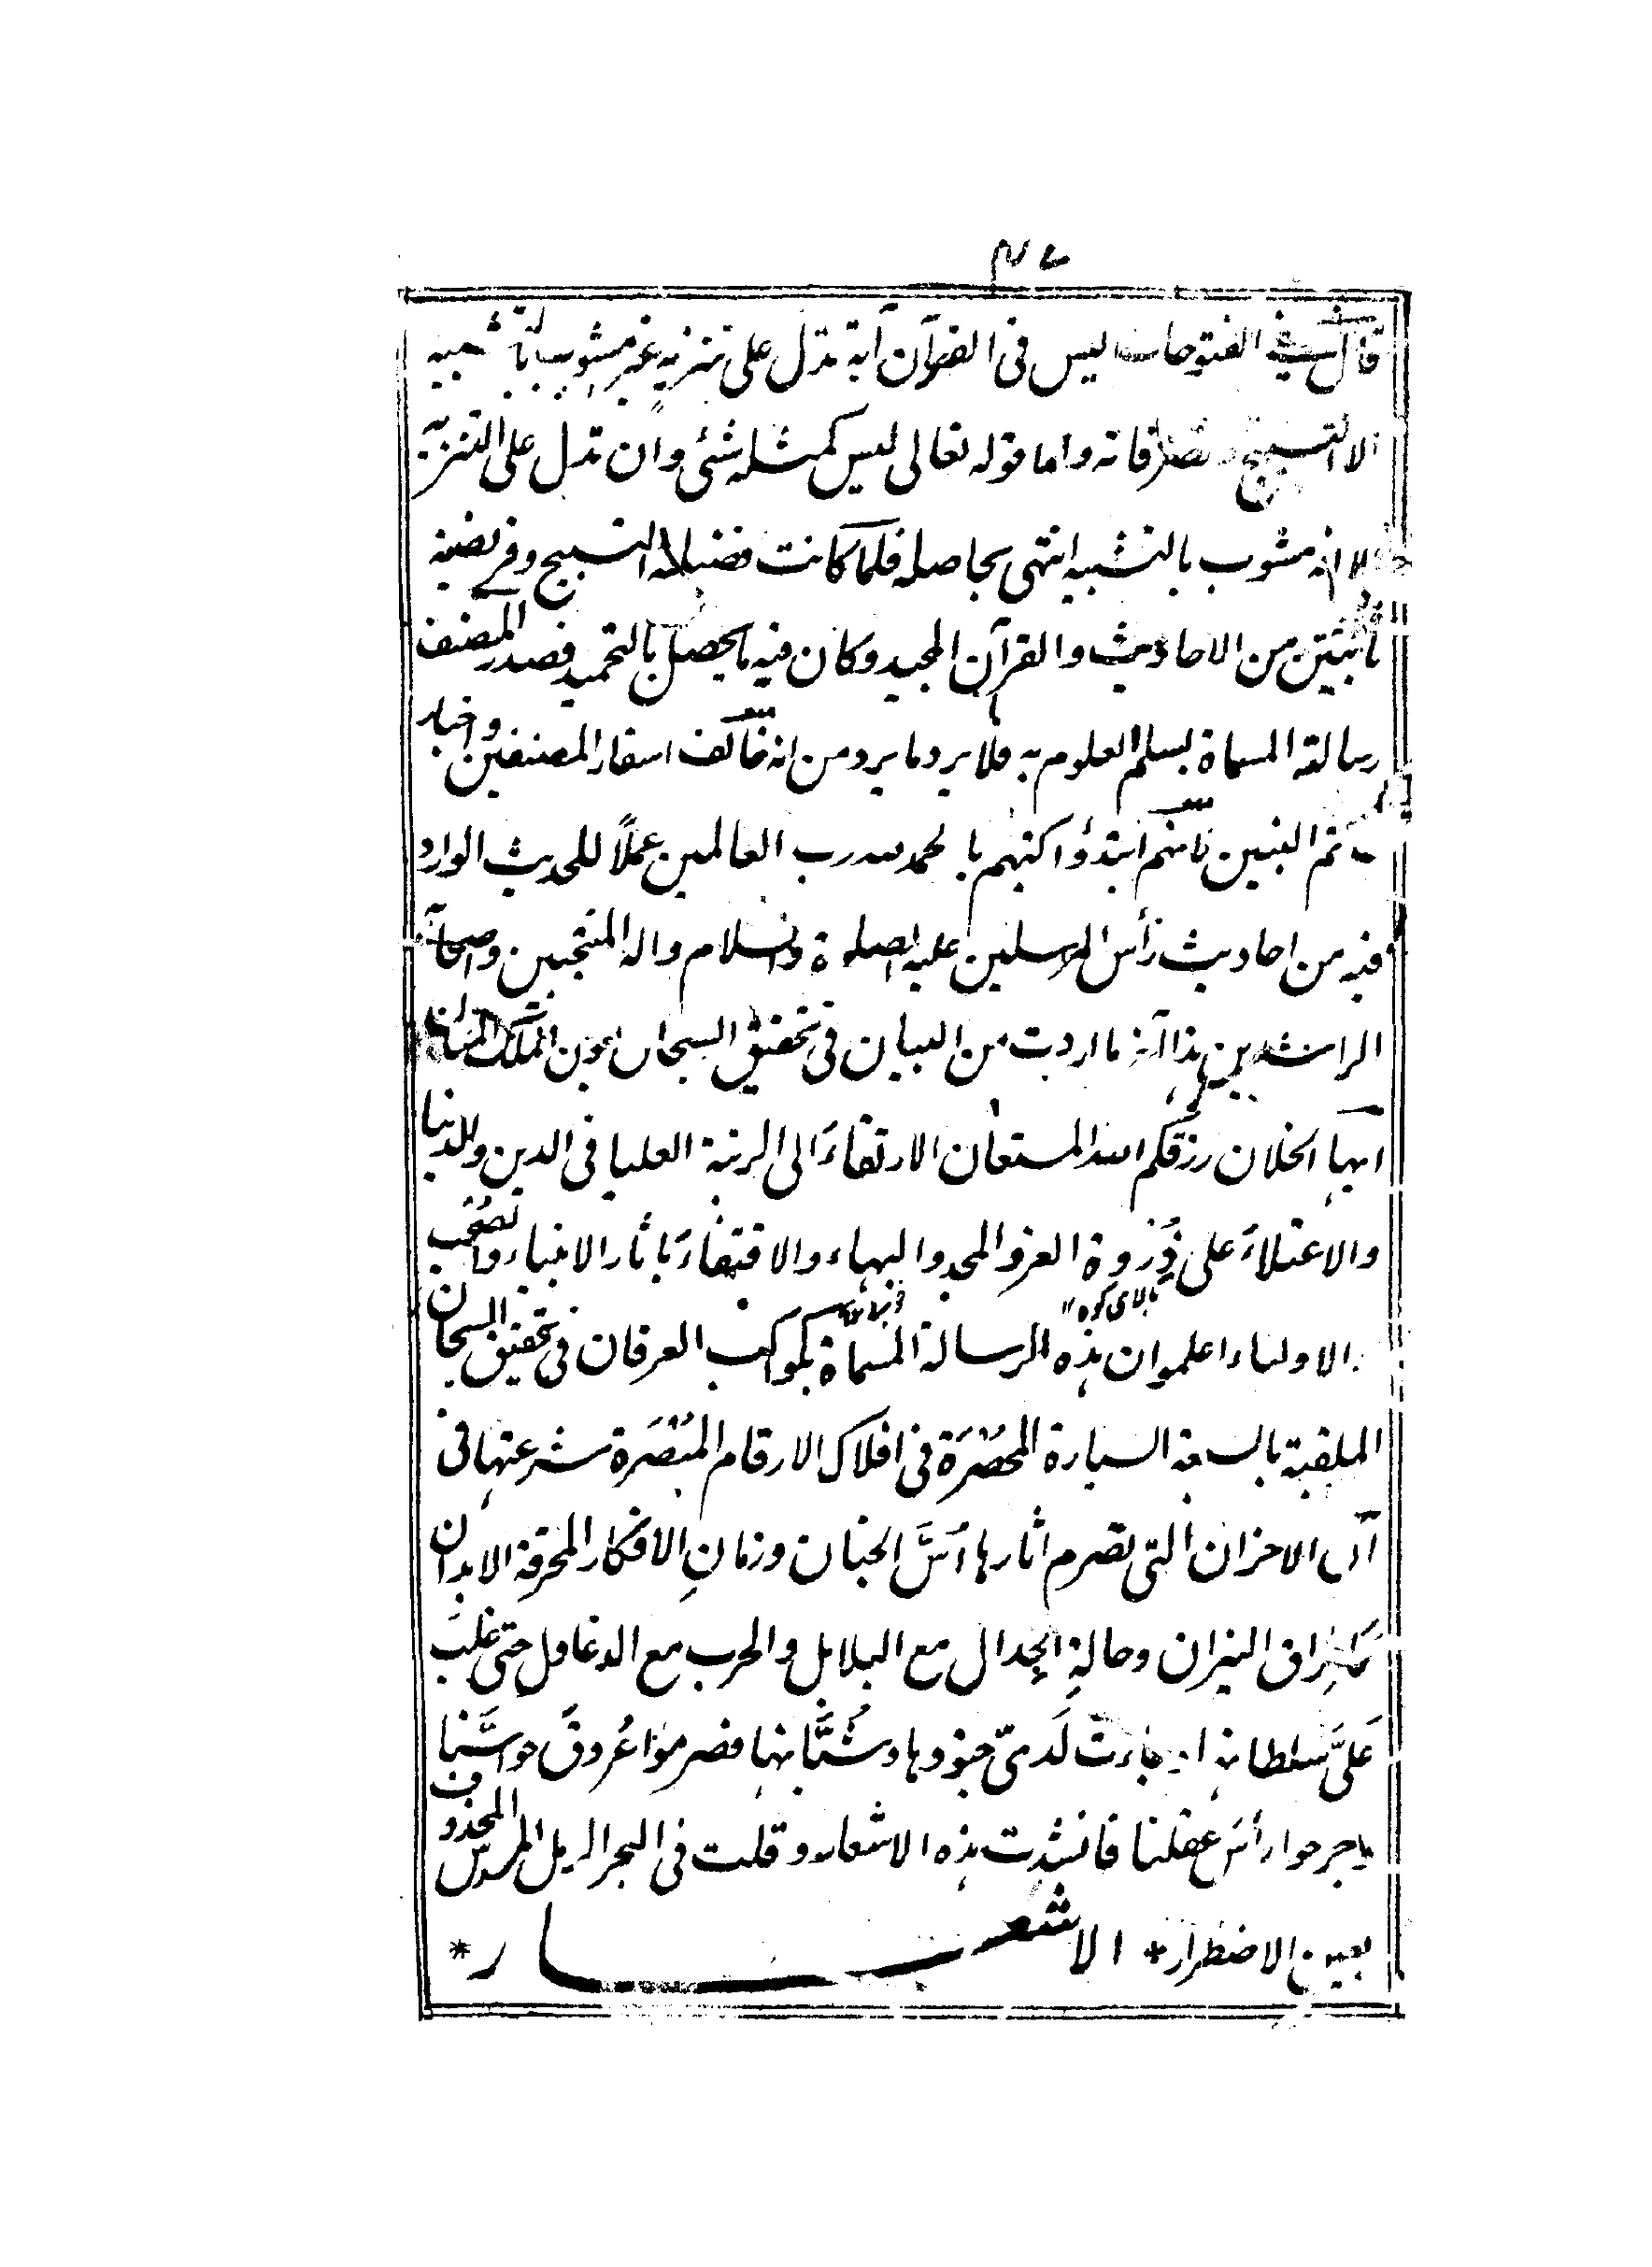 ۴۷
قال فى الفتوحات ليس فى القرآن آية تدل على تنزيه غير مشوب بالتشبيه
الا التسبيح وتصرفاته واما قوله تعالى ليس كمثله شئ وان تدل على التنزيه
الا انه مشوب بالتشبيه انتهى بحاصله فلما كانت فضيلة التسبيح وفريضيته
ثابتتين من الاحاديث والقرآن المجيد وكان فيه ما يحصل بالتحميد فصدر المصنف
رسالته المسماة بسلم العلوم به فلا يرد ما يرد من انه خالف اسفار المصنفين واخبار
النبيين فانهم ابتدؤا كتبهم بالحمد لله رب العالمين عملاً للحديث الوارد
فيه من احاديث رأس المرسلين عليه الصلوة والسلام واله المنتجبين واصحابه
الراشدين هذا آخر ما اردت من البيان فى تحقيق السبحان بعون الملك المنان
ايها الخلان رزقكم الله المستعان الارتقاءَ الى الرتبة العليا فى الدين والدنيا
والاعتلاءَ على ذُِروة العز والمجد والبهاء والاقتفاءَ باثار الانبياء وا
بالاى كوه
الاولياء اعلموا ان هذه الرسالة المسماة بكواكب العرفان فى تحقيق السبحان
الملقبة بالسبعة السيارة المحصَرَة فى افلاك الارقام المبُْصَرة شرعتها فى
آن الاحزان التى تضرم اثارها اُسَّ الجنان وزمانِ الافكار المحرقة الابدان
كاحراق النيران وحالةِ الجدال مع البلابل والحرب مع الدغاول حتى غلبَ
عَلىَّ سلطانه اذ جاءت لَدىّ جنودها وشُبَّانها فصرموا عُروقَ حواسِّنا
وجرحوا رأسَ عقلنا فانشدت هذه الاشعار وقلت فى البحر الرمل المسدس المحذوف
بعين الاضطرار * الاشعـــــار *